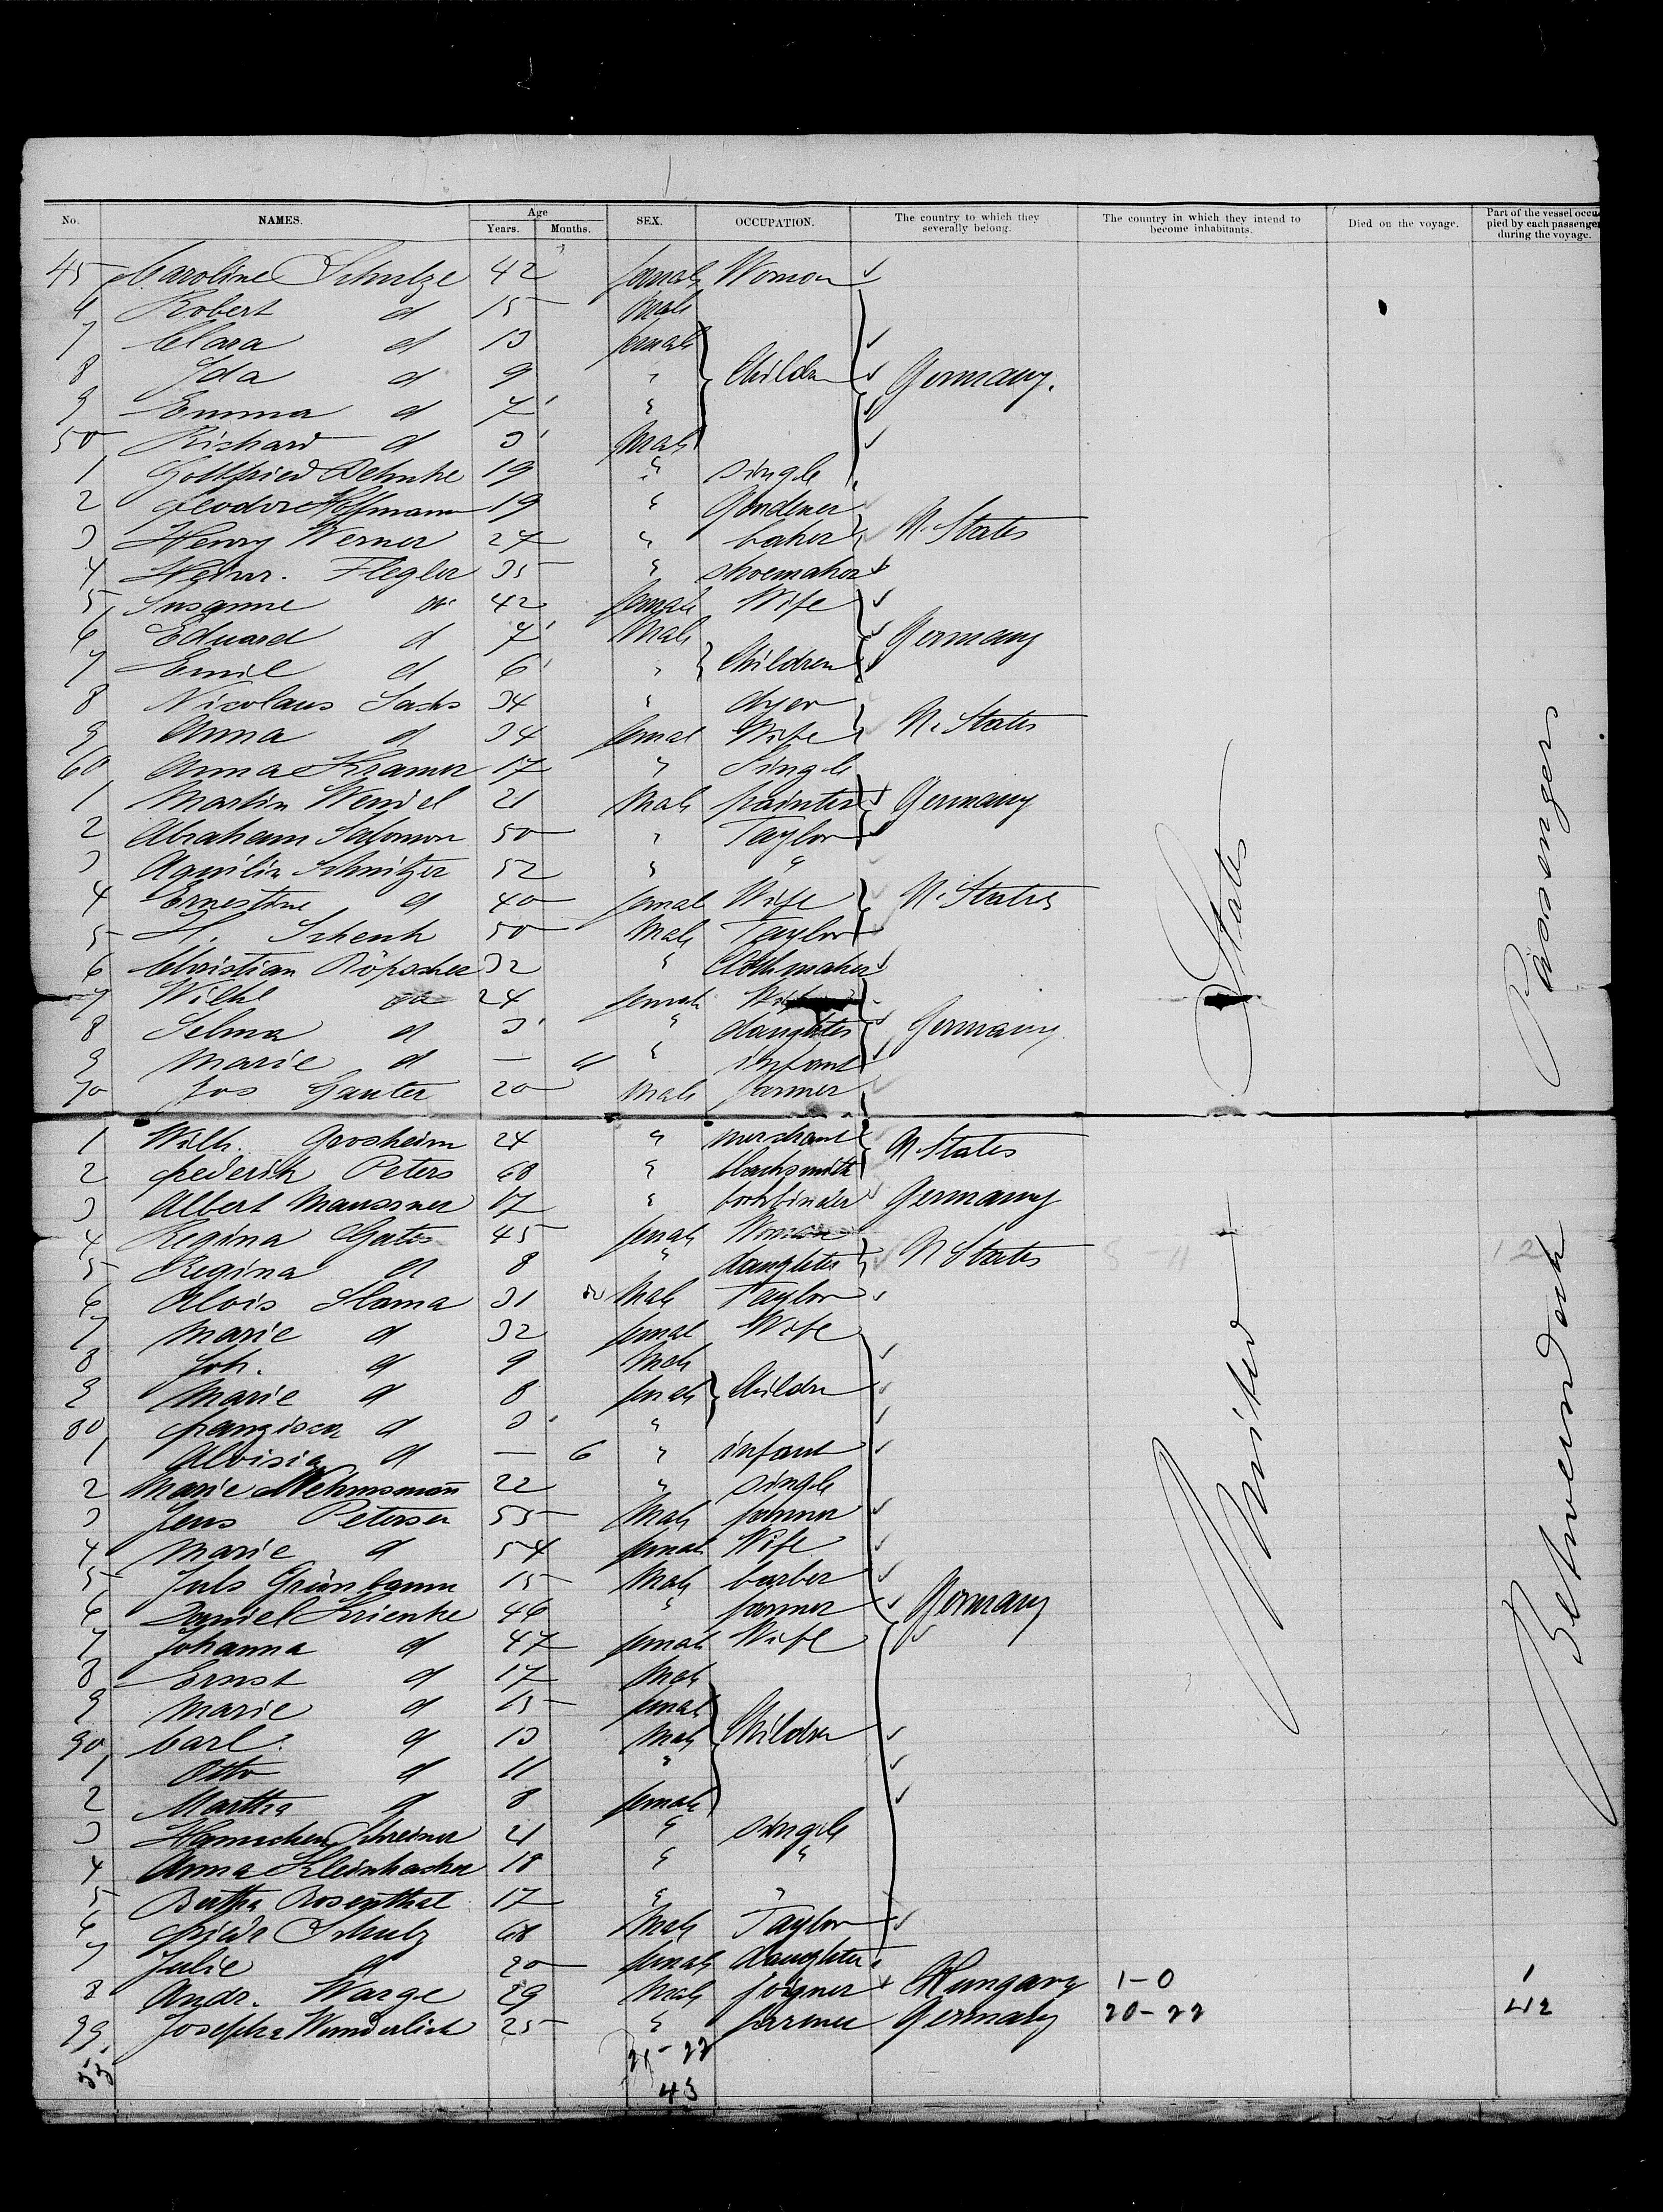 No. NAMES. Age Years. Months. SEX. OCCUPATION. The country to which they severally belong. The country in which they intend to become inhabitants. Died on the voyage. Part of the vessel occupied by each passenger during the voyage.
45 Caroline Schulze 42 female Woman
6 Robert d 15 Male
7 Clara d 13 female
8 Ida d 9 " Childn Germany.
9 Emma d 7 "
50 Richard d 3 Male
1 Gottfried Behnke 19 " single
2 feodor Hoffmann 19 " Gardener
3 Henry Werner 27 " baker U. States
4 Heinr. Flegler 35 " shoemaker
5 Susanne 42 female Wife
6 Eduard d 7 Male Germany
7 Emil d 6 " Children
8 Nicolaus Sachs 34 " dyer
9 Anna d 34 femal Wife U. States
60 Anna Kramer 17 " Single
1 Martin Wendel 21 Male painter Germany
2 Abraham Salomon 50 " Taylor
3 Aquilin Schnitzer 52 " "
4 Ernestine d 40 femal Wife U. States
5 H. Schenk 50 Male Taylor
6 Christian 32 " Clothmaker
7 Wilhe 24 female Wife
8 Selma d 3 " daughter Germany
9 Marie d — 11 " infant
70 Jos Ganter 20 Male farmer
1 Wilh. Grosheim 24 " merchant U. States
2 frederik Peters 68 " blacksmith
3 Albert Maussner 17 " bookbinder Germany
4 Regina Gates 45 female Woman
5 Regina d 8 " daughter U States
6 Alois Slama 31 Male Taylor
7 Marie d 32 femal Wife
8 Joh. d 9 Male
9 Marie d 8 female Childn
80 franzisca d 3 "
1 Aloisia d — 6 " infant
2 Marie Wehmsmann 22 " single
3 Jens Petersen 55 Male farmer
4 Marie d 54 female Wife
5 Juls Grünbaum 15 Male barber
6 Daniel Krienke 46 " farmer Germany
7 Johanna d 47 female Wife
8 Ernst d 17 Male
9 Marie d 15 femal
90 Carl d 13 Male Childrn
1 Otto d 11 "
2 Martha d 8 female
3 Hannchen Schreiner 21 " single
4 Anna Kleinhacker 18 " "
5 Bertha Rosenthal 17 " "
6 friedr Schulz 68 Male Taylor
7 Julie d 20 female daughter
8 Andr. Warge 29 Male joigner Hungary 1-0 1
99. Josepha Wunderlich 25 " farmer Germany 20-22 42
55 21-22
43
United States
Betweendeck Passengers